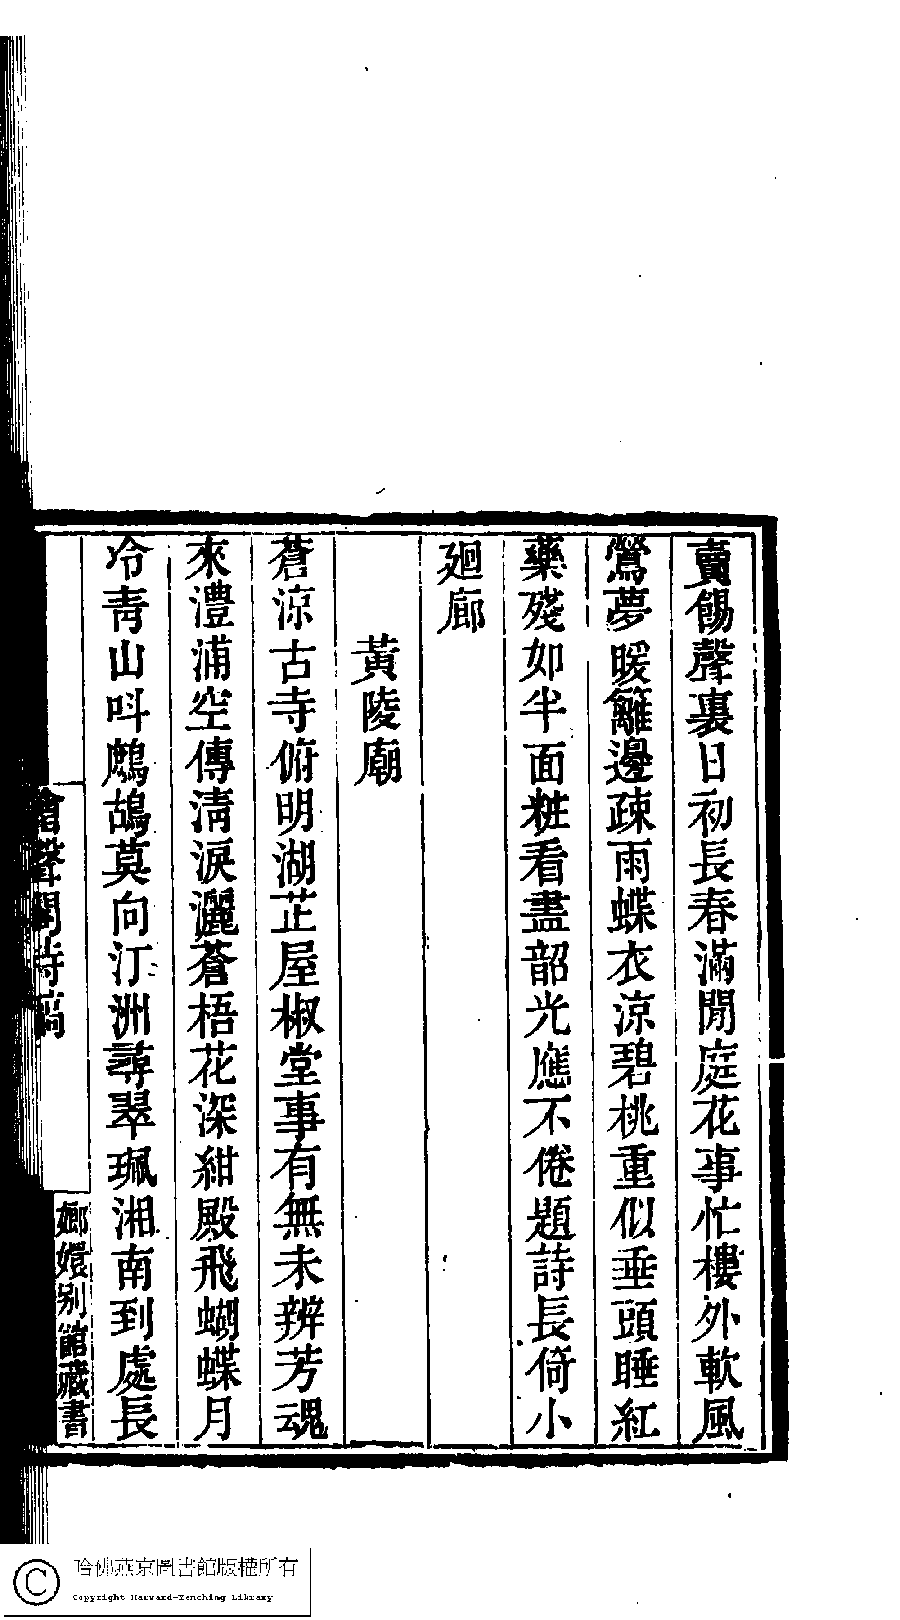 賣餳聲裏日初長春滿閒庭花事忙樓外軟風
鶯夢暖籬邊疎雨蝶衣涼碧桃重似垂頭睡紅
藥殘如半面粧看盡韶光應不倦題詩長倚小
廻廊
黃陵廟
蒼涼古寺俯明湖芷屋椒堂事有無未辨芳魂
來澧浦空傳淸淚灑蒼梧花深紺殿飛蝴蝶月
冷靑山呌鷓鴣莫向汀洲尋翠珮湘南到處長
聲閣詩稿
嫏嬛別館藏書
哈佛燕京圖書館版權所有
Copyright Harvard-Yenching Library